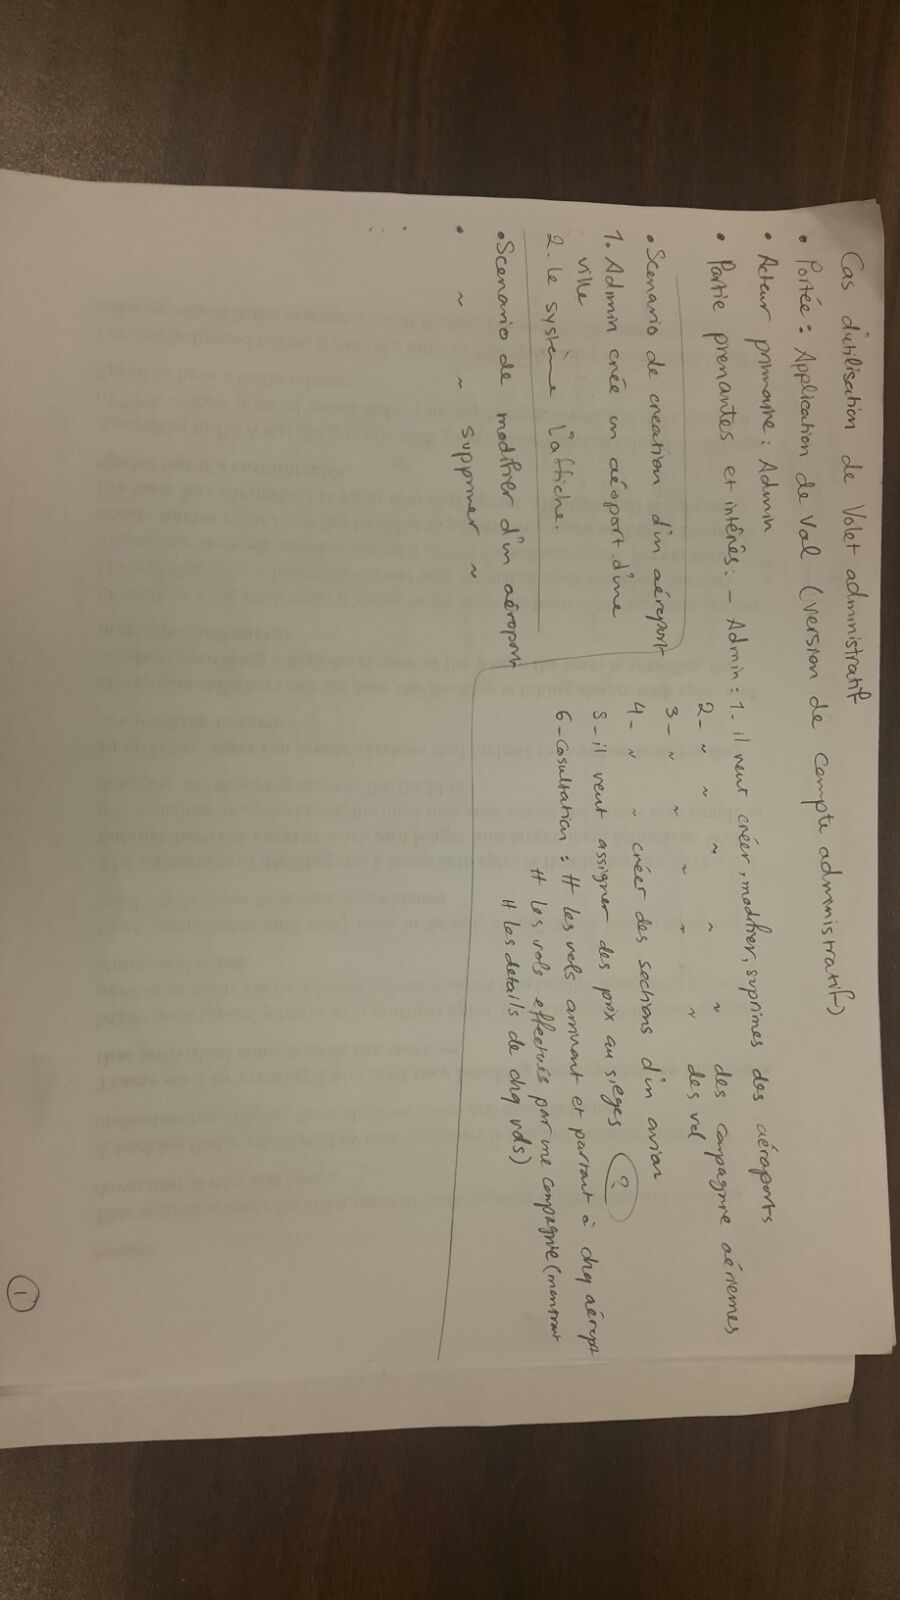 Cas d'utilisation de Volet administratif
• Portée : Application de Vol (version de compte administratif)
• Acteur primaire : Admin
• Partie prenantes et intérês : - Admin : 1- il veut créer, modifier, suprimes des aéroports
2- ~ ~ ~ ~ ~ des compagnie aériennes
3- ~ ~ ~ ~ ~ des vol
4- ~ ~ créer des sections d'un avion
5- il veut assigner des prix au sieges ?
6- Cosultation : # les vols arrivant et partant à chq aéropt
# les vols effectués par une compagnie (montrant
# les details de chq vols)
• Scenario de creation d'un aéroport
1. Admin crée un aéoport d'une
ville
2. Le système l'affiche.
• Scenario de modifier d'un aéroport
• ~ ~ supprimer ~
.
.
.
1